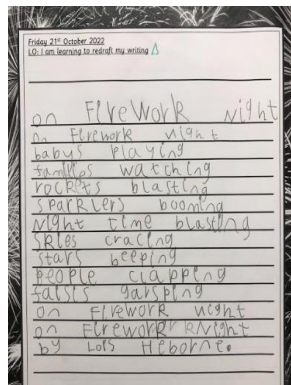 Friday 21st October 2022
LO: I am learning to redraft my writing
on FIreWORK Night
On Firework night
babys Playing
families watching
rockets blasting
sparklers booming
Night time blasting
skies cracing
stars beeping
people clapping
falsis garsping
on Firework night
on Firework Night
by Lois Heborne.